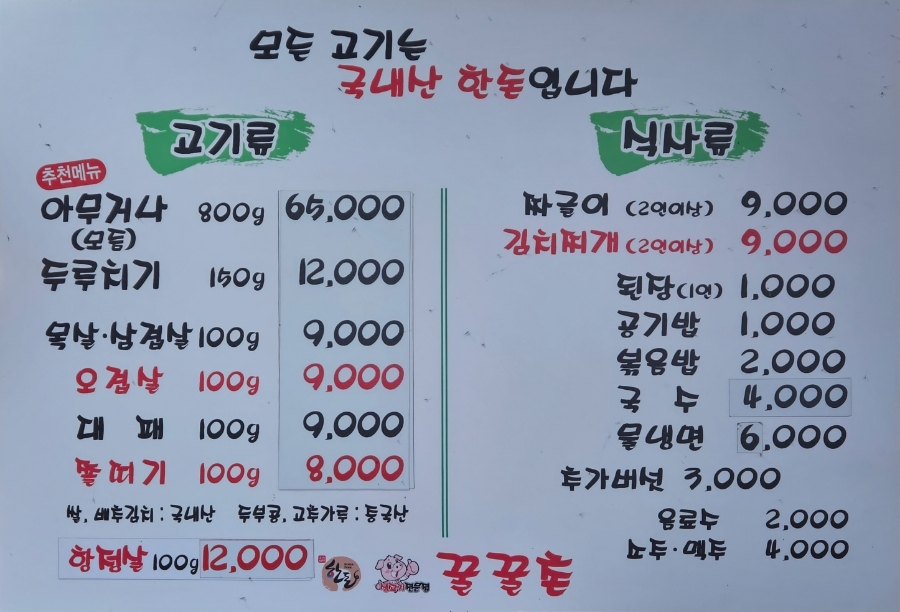 모든 고기는
국내산 한돈입니다
고기류
추천메뉴
아무거나 800g 65,000
(모듬)
두루치기 150g 12,000
목살·삼겹살 100g 9,000
오겹살 100g 9,000
대패 100g 9,000
쫄띠기 100g 8,000
쌀, 배추김치 : 국내산 두부콩, 고추가루 : 중국산
항정살 100g 12,000
한돈
식사류
짜글이 (2인이상) 9,000
김치찌개 (2인이상) 9,000
된장 (1인) 1,000
공기밥 1,000
볶음밥 2,000
국수 4,000
물냉면 6,000
추가버섯 3,000
음료수 2,000
소주·맥주 4,000
꿀꿀촌